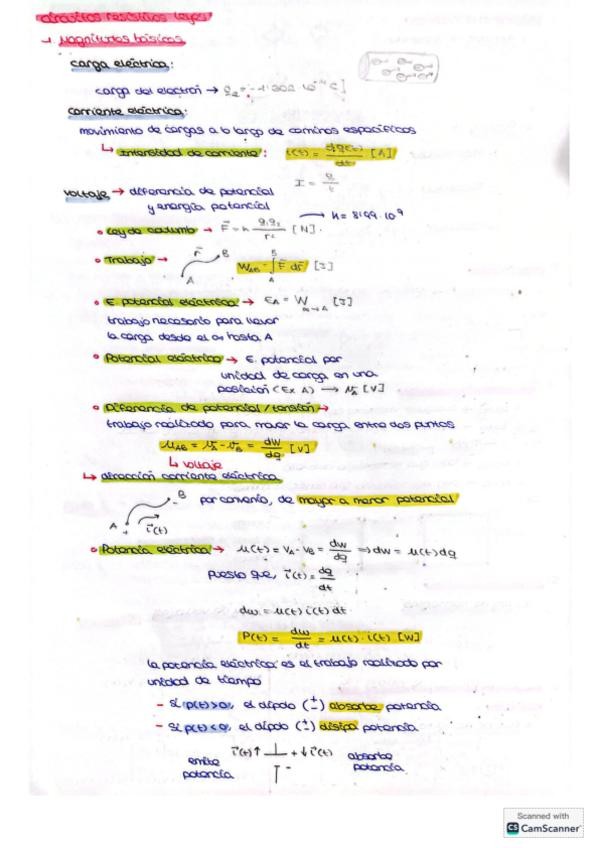 circuitos resistivos leyes
→ Magnitudes básicas
carga eléctrica:
carga del electrón → Qe = -1'602 · 10⁻¹⁹ C]
corriente eléctrica:
movimiento de cargas a lo largo de caminos específicos
↳ Intensidad de corriente: i(t) = dq(t)/dt [A]
I = Q/t
voltaje → diferencia de potencial
y energía potencial
• Ley de coulomb → F = k q₁q₂/r² [N]. → k = 8'99·10⁹
• Trabajo → r A B W_AB = ∫_A^B F dr [J]
• E potencial eléctrica → E_A = W_∞→A [J]
trabajo necesario para llevar
la carga desde el ∞ hasta A
• Potencial eléctrico → E. potencial por
unidad de carga en una
posición (Ex A) → V_A [V]
• Diferencia de potencial/tensión →
trabajo realizado para mover la carga entre dos puntos
u_AB = V_A - V_B = dw/dq [V]
↳ voltaje
↳ dirección corriente eléctrica
A + - B i(t) por convenio, de mayor a menor potencial
• Potencia eléctrica → u(t) = V_A - V_B = dw/dq ⇒ dw = u(t)dq
puesto que, i(t) = dq/dt
dw = u(t) i(t) dt
P(t) = dw/dt = u(t) · i(t) [W]
la potencia eléctrica es el trabajo realizado por
unidad de tiempo
- Si p(t)>0, el dipolo (±) absorbe potencia
- Si p(t)<0, el dipolo (±) disipa potencia
i(t)↑ + ↓i(t)
emite potencia - absorbe potencia
Scanned with
CS CamScanner